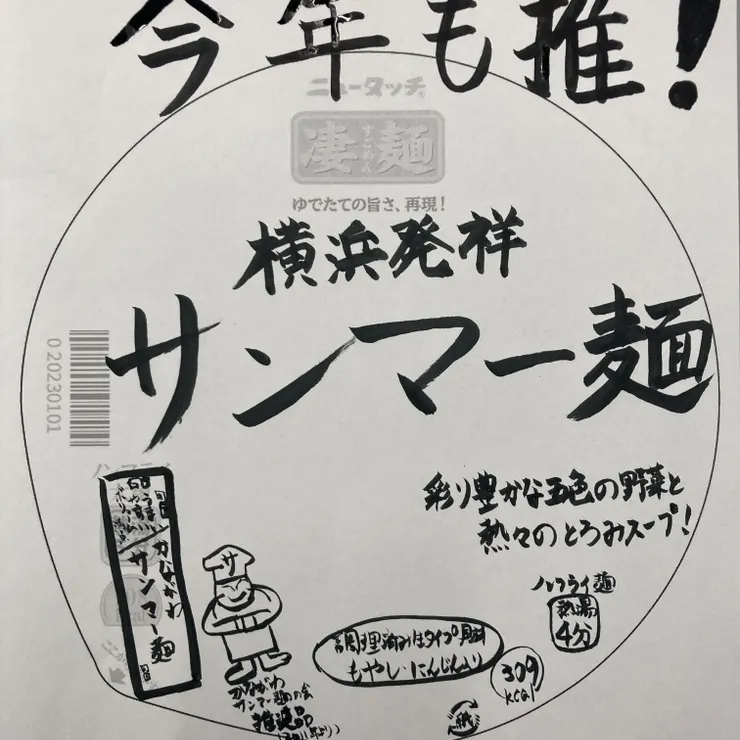 今年も推!
ニュータッチ®
凄麺
すごめん
ゆでたての旨さ、再現!
横浜発祥
サンマー麺
0 20230101
彩り豊かな五色の野菜と
熱々のとろみスープ!
ノンフライ麺
熱湯
4分
かながわ
サンマー麺
サ
かながわ
サンマー麺の会
推奨品
調理済み
もやし・にんじん入り
309
kcal
紙